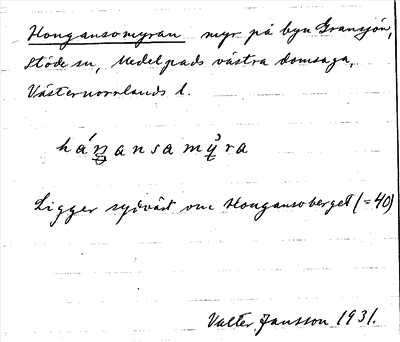 Hongansomyran myr på byn Gransjön,
Stöde sn, Medelpads västra domsaga,
Västernorrlands l.
håŋansamýra
Ligger sydväst om Hongansoberget (=40)
Valter Jansson 1931.